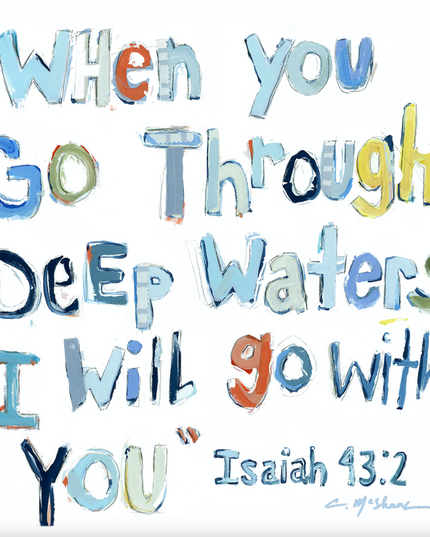 When you
Go Through
Deep Waters
I will go with
YOU" Isaiah 43:2
C. McShane